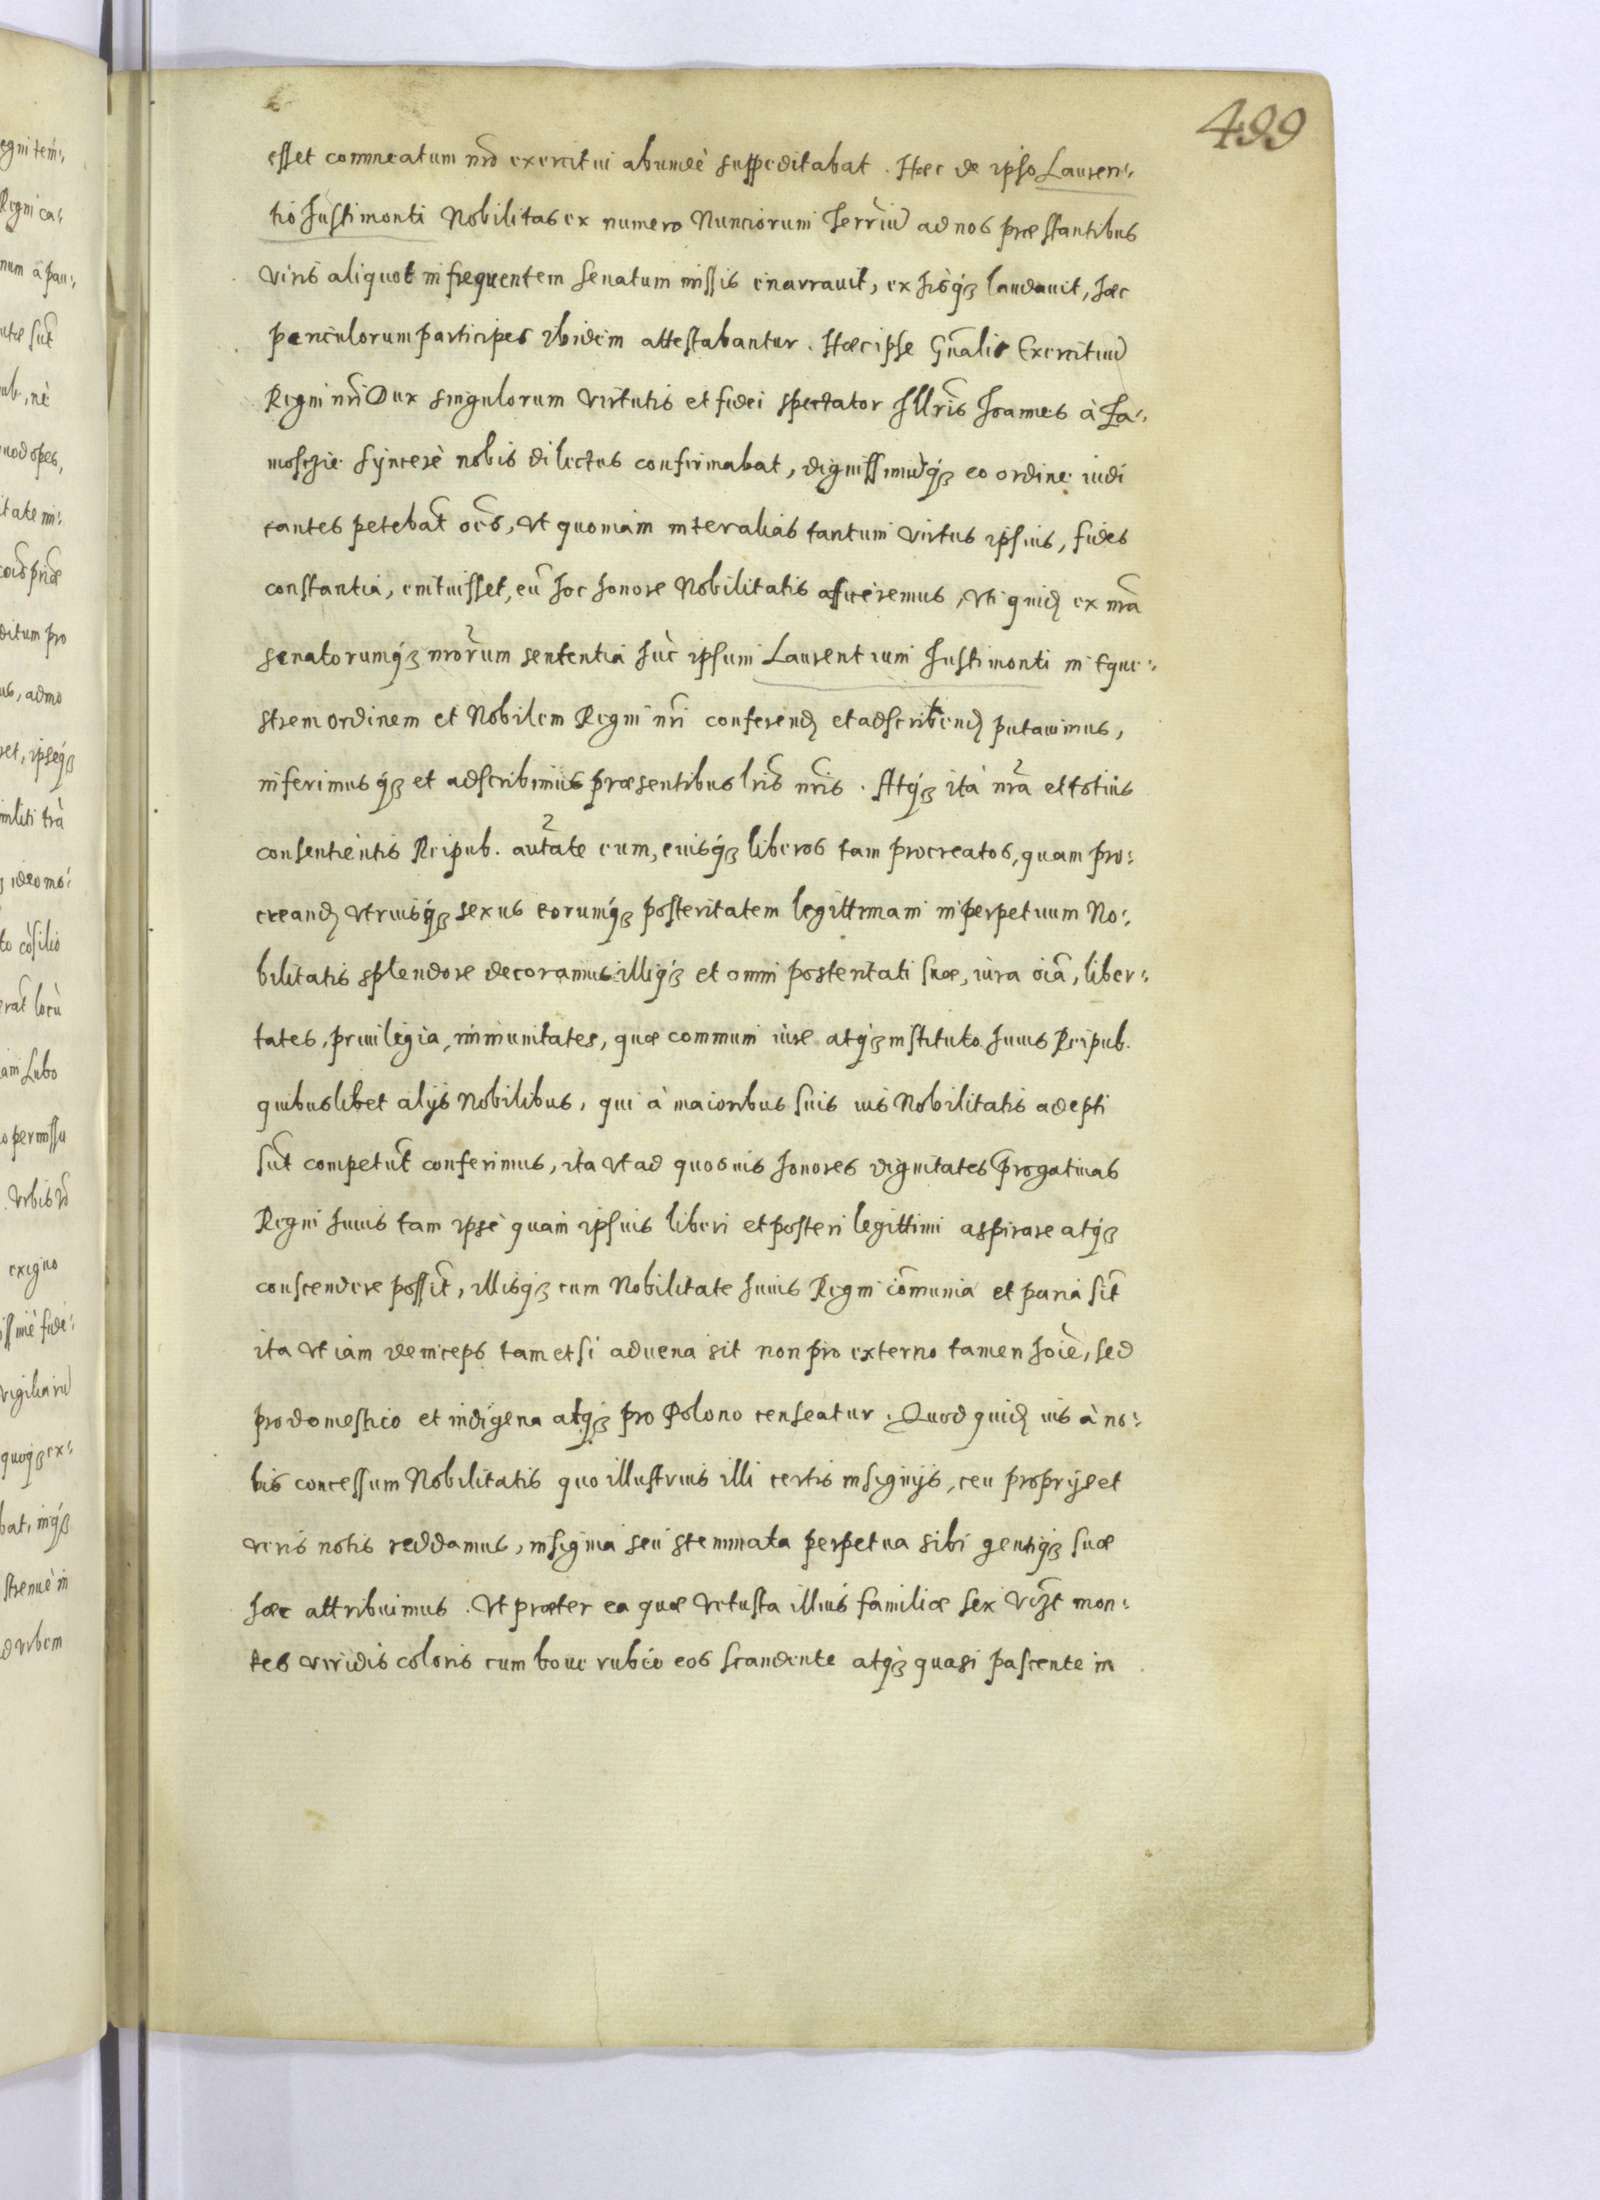 499
esset commeatum nrõ exercitui abundè suppeditabat. Hæc de ipso Lauren-
tio Justimonti Nobilitas ex numero Nunciorum Terrarũ ad nos præstantibus
viris aliquot in frequentem Senatum missis enarravit, ex hisq́ laudavit, hæc
periculorum participes ibidem attestabantur. Hæc ipse Gñalis Exercituũ
Regni nrĩ Dux singulorum virtutis et fidei spectator Illris̃ Joannes à Za-
mosczie syncerè nobis dilectus confirmabat, dignissimũq́ eo ordine iudi
cantes petebañt oẽs, vt quoniam inter alias tantum virtus ipsius, fides
constantia, enituisset, eũ hoc honore Nobilitatis afficeremus, Vti quid ex nrã
senatorumq́ nrõrum sententia hũc ipsum Laurentium Justimonti in Eque-
strem ordinem et Nobilem Regni nrĩ conferend et adscribend putavimus,
inferimusq́ et adscribimus præsentibus lris̃ nris̃. Atq́ ità nrã et totius
consentientis Reipub. autãte eum, eiusq́ liberos tam procreatos, quam pro-
creand vtriusq́ sexus eorumq́ posteritatem legittimam in perpetuum No-
bilitatis splendore decoramus illiq́ et omni posteritati suæ, iura oĩa, liber-
tates, privilegia, immunitates, quæ communi iure atq́ instituto huius Reipub.
quibuslibet alijs Nobilibus, qui à maioribus suis ius Nobilitatis adepti
sũt competũt conferimus, ita vt ad quosuis honores dignitates p̃rogatiuas
Regni huius tam ipse quàm ipsius liberi et posteri legittimi aspirare atq́
conscendere possĩt, illisq́ cum Nobilitate huius Regni cõmunia et paria sĩt
ita vt iam deinceps tametsi aduena sit non pro externo tamen hoĩe, sed
pro domestico et indigena atq́ pro Polono censeatur. Quod quid ius à no-
bis concessum Nobilitatis quo illustrius illi certis insignijs, ceu proprijs et
veris notis reddamus, insignia seu stemmata perpetua sibi gentiq́ suæ
hæc attribuimus. Vt præter ea quæ vetusta illius familiæ sex vizt̃ mon-
tes viridis coloris cum boue rubeo eos scandente atq́ quasi pascente in